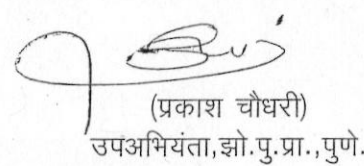 (प्रकाश चौधरी)
उपअभियंता,झो.पु.प्रा.,पुणे.